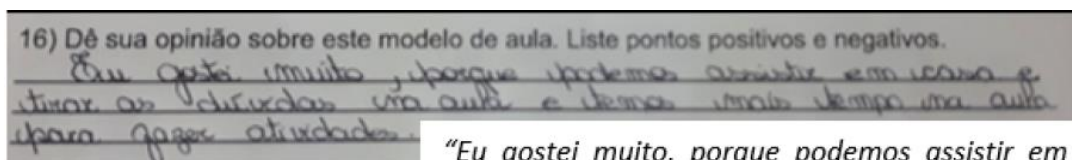 16) Dê sua opinião sobre este modelo de aula. Liste pontos positivos e negativos.
Eu gostei muito, porque podemos assistir em casa e
tirar as dúvidas na aula e temos mais tempo na aula
para fazer atividades.
"Eu gostei muito, porque podemos assistir em